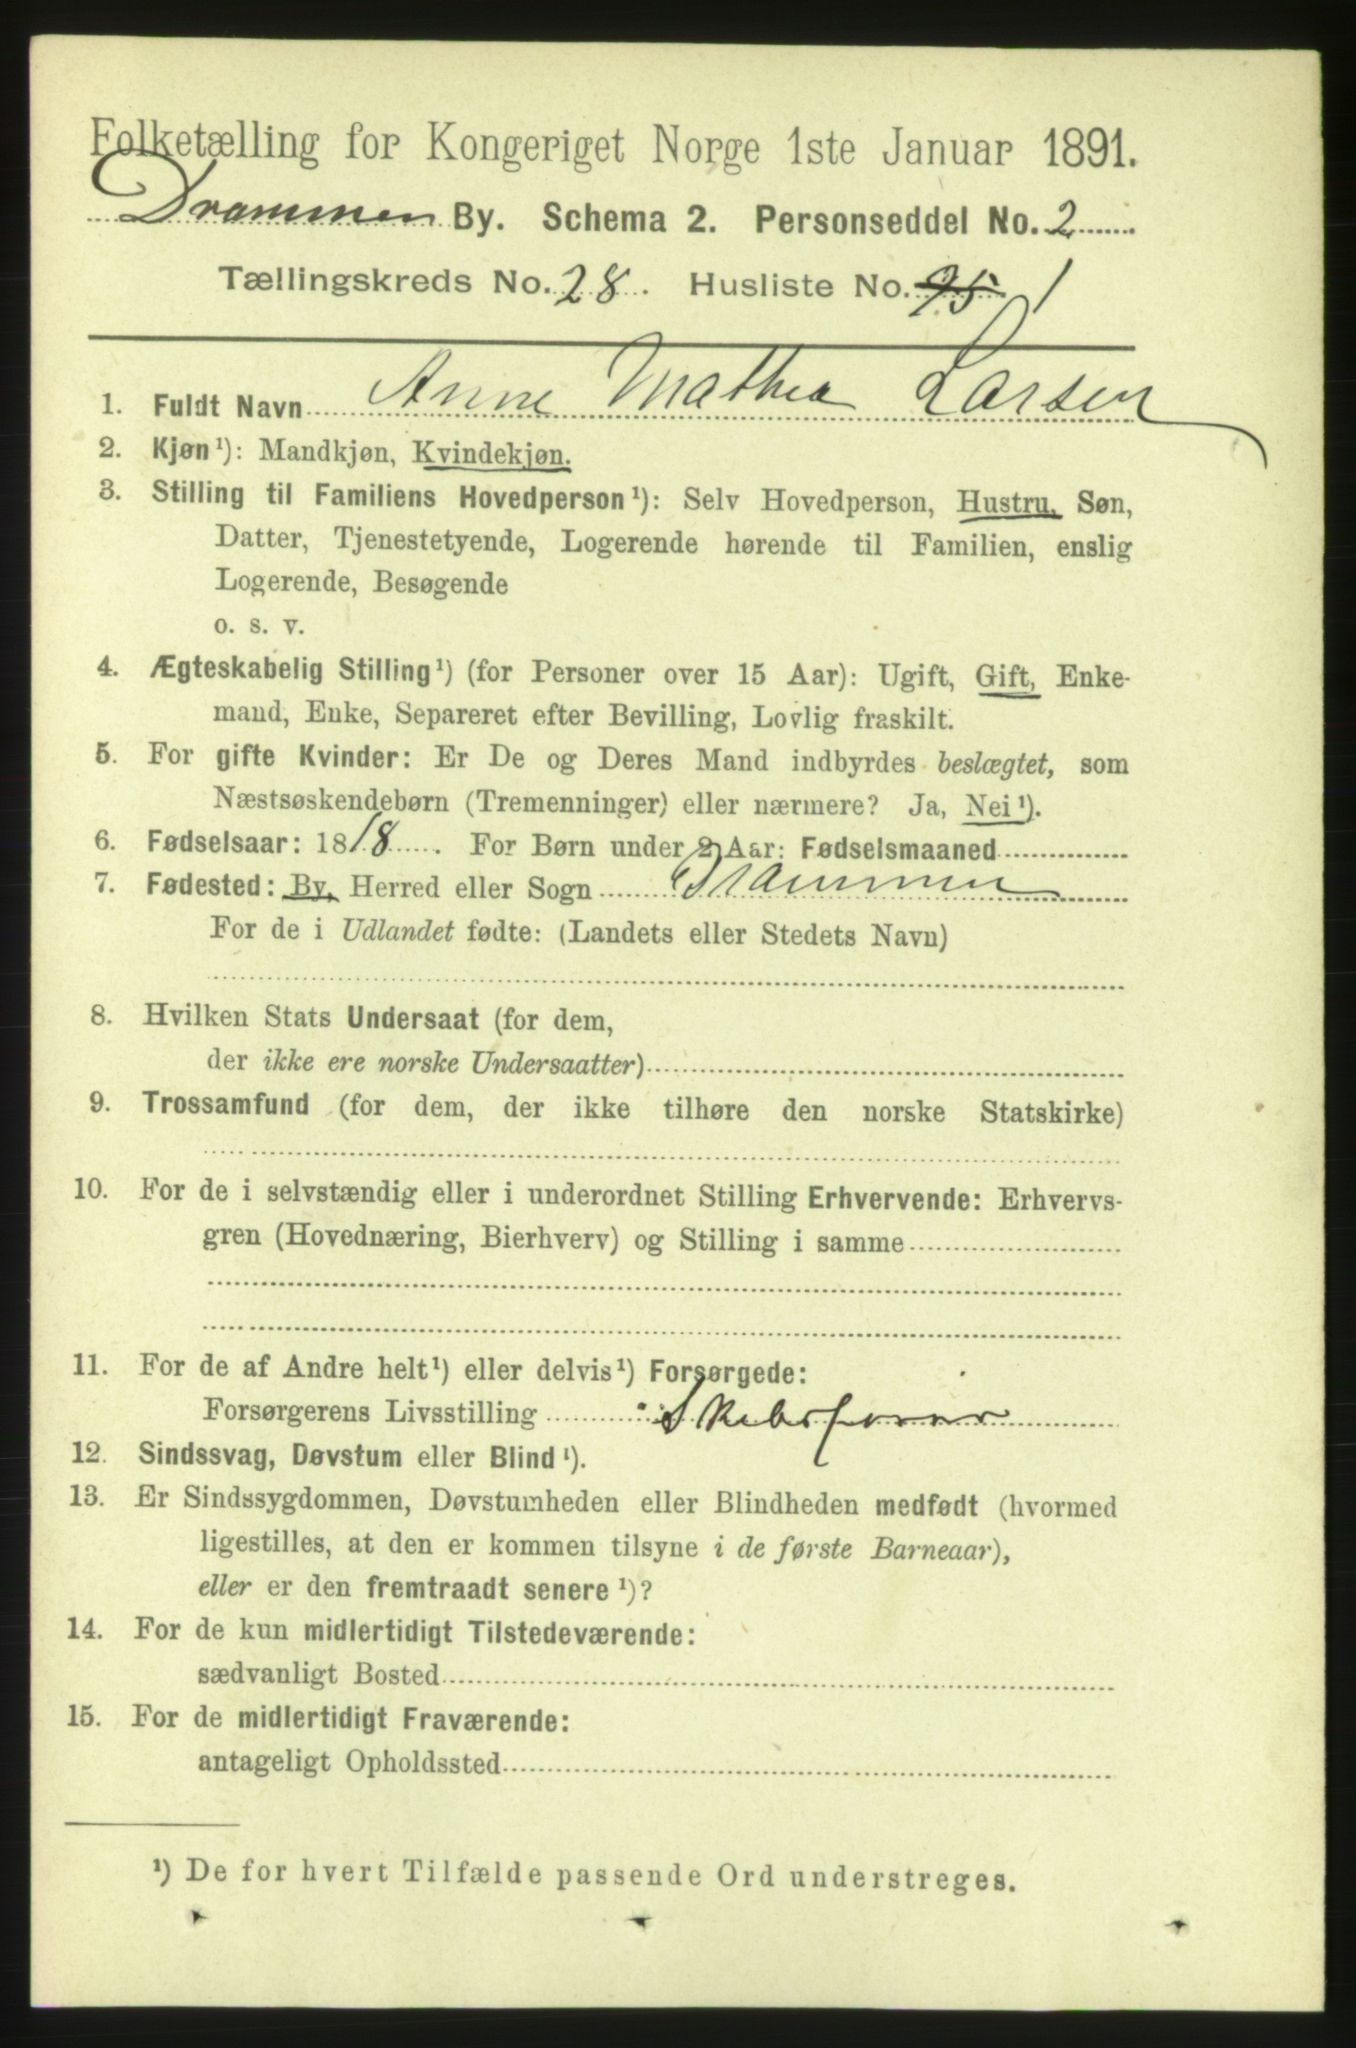 Folketælling for Kongeriget Norge 1ste Januar 1891.
Drammen By. Schema 2. Personseddel No. 2
Tællingskreds No. 28. Husliste No. 95 1
1. Fuldt Navn Anne Mathea Larsen
2. Kjøn¹): Mandkjøn, Kvindekjøn.
3. Stilling til Familiens Hovedperson¹): Selv Hovedperson, Hustru, Søn,
Datter, Tjenestetyende, Logerende hørende til Familien, enslig
Logerende, Besøgende
o. s. v.
4. Ægteskabelig Stilling¹) (for Personer over 15 Aar): Ugift, Gift, Enke-
mand, Enke, Separeret efter Bevilling, Lovlig fraskilt.
5. For gifte Kvinder: Er De og Deres Mand indbyrdes beslægtet, som
Næstsøskendebørn (Tremenninger) eller nærmere? Ja, Nei¹).
6. Fødselsaar: 1818. For Børn under 2 Aar: Fødselsmaaned
7. Fødested: By, Herred eller Sogn Drammen
For de i Udlandet fødte: (Landets eller Stedets Navn)
8. Hvilken Stats Undersaat (for dem,
der ikke ere norske Undersaatter)
9. Trossamfund (for dem, der ikke tilhøre den norske Statskirke)
10. For de i selvstændig eller i underordnet Stilling Erhvervende: Erhvervs-
gren (Hovednæring, Bierhverv) og Stilling i samme
11. For de af Andre helt¹) eller delvis¹) Forsørgede:
Forsørgerens Livsstilling
12. Sindssvag, Døvstum eller Blind¹).
13. Er Sindssygdommen, Døvstumheden eller Blindheden medfødt (hvormed
ligestilles, at den er kommen tilsyne i de første Barneaar),
eller er den fremtraadt senere¹)?
14. For de kun midlertidigt Tilstedeværende:
sædvanligt Bosted
15. For de midlertidigt Fraværende:
antageligt Opholdssted
¹) De for hvert Tilfælde passende Ord understreges.